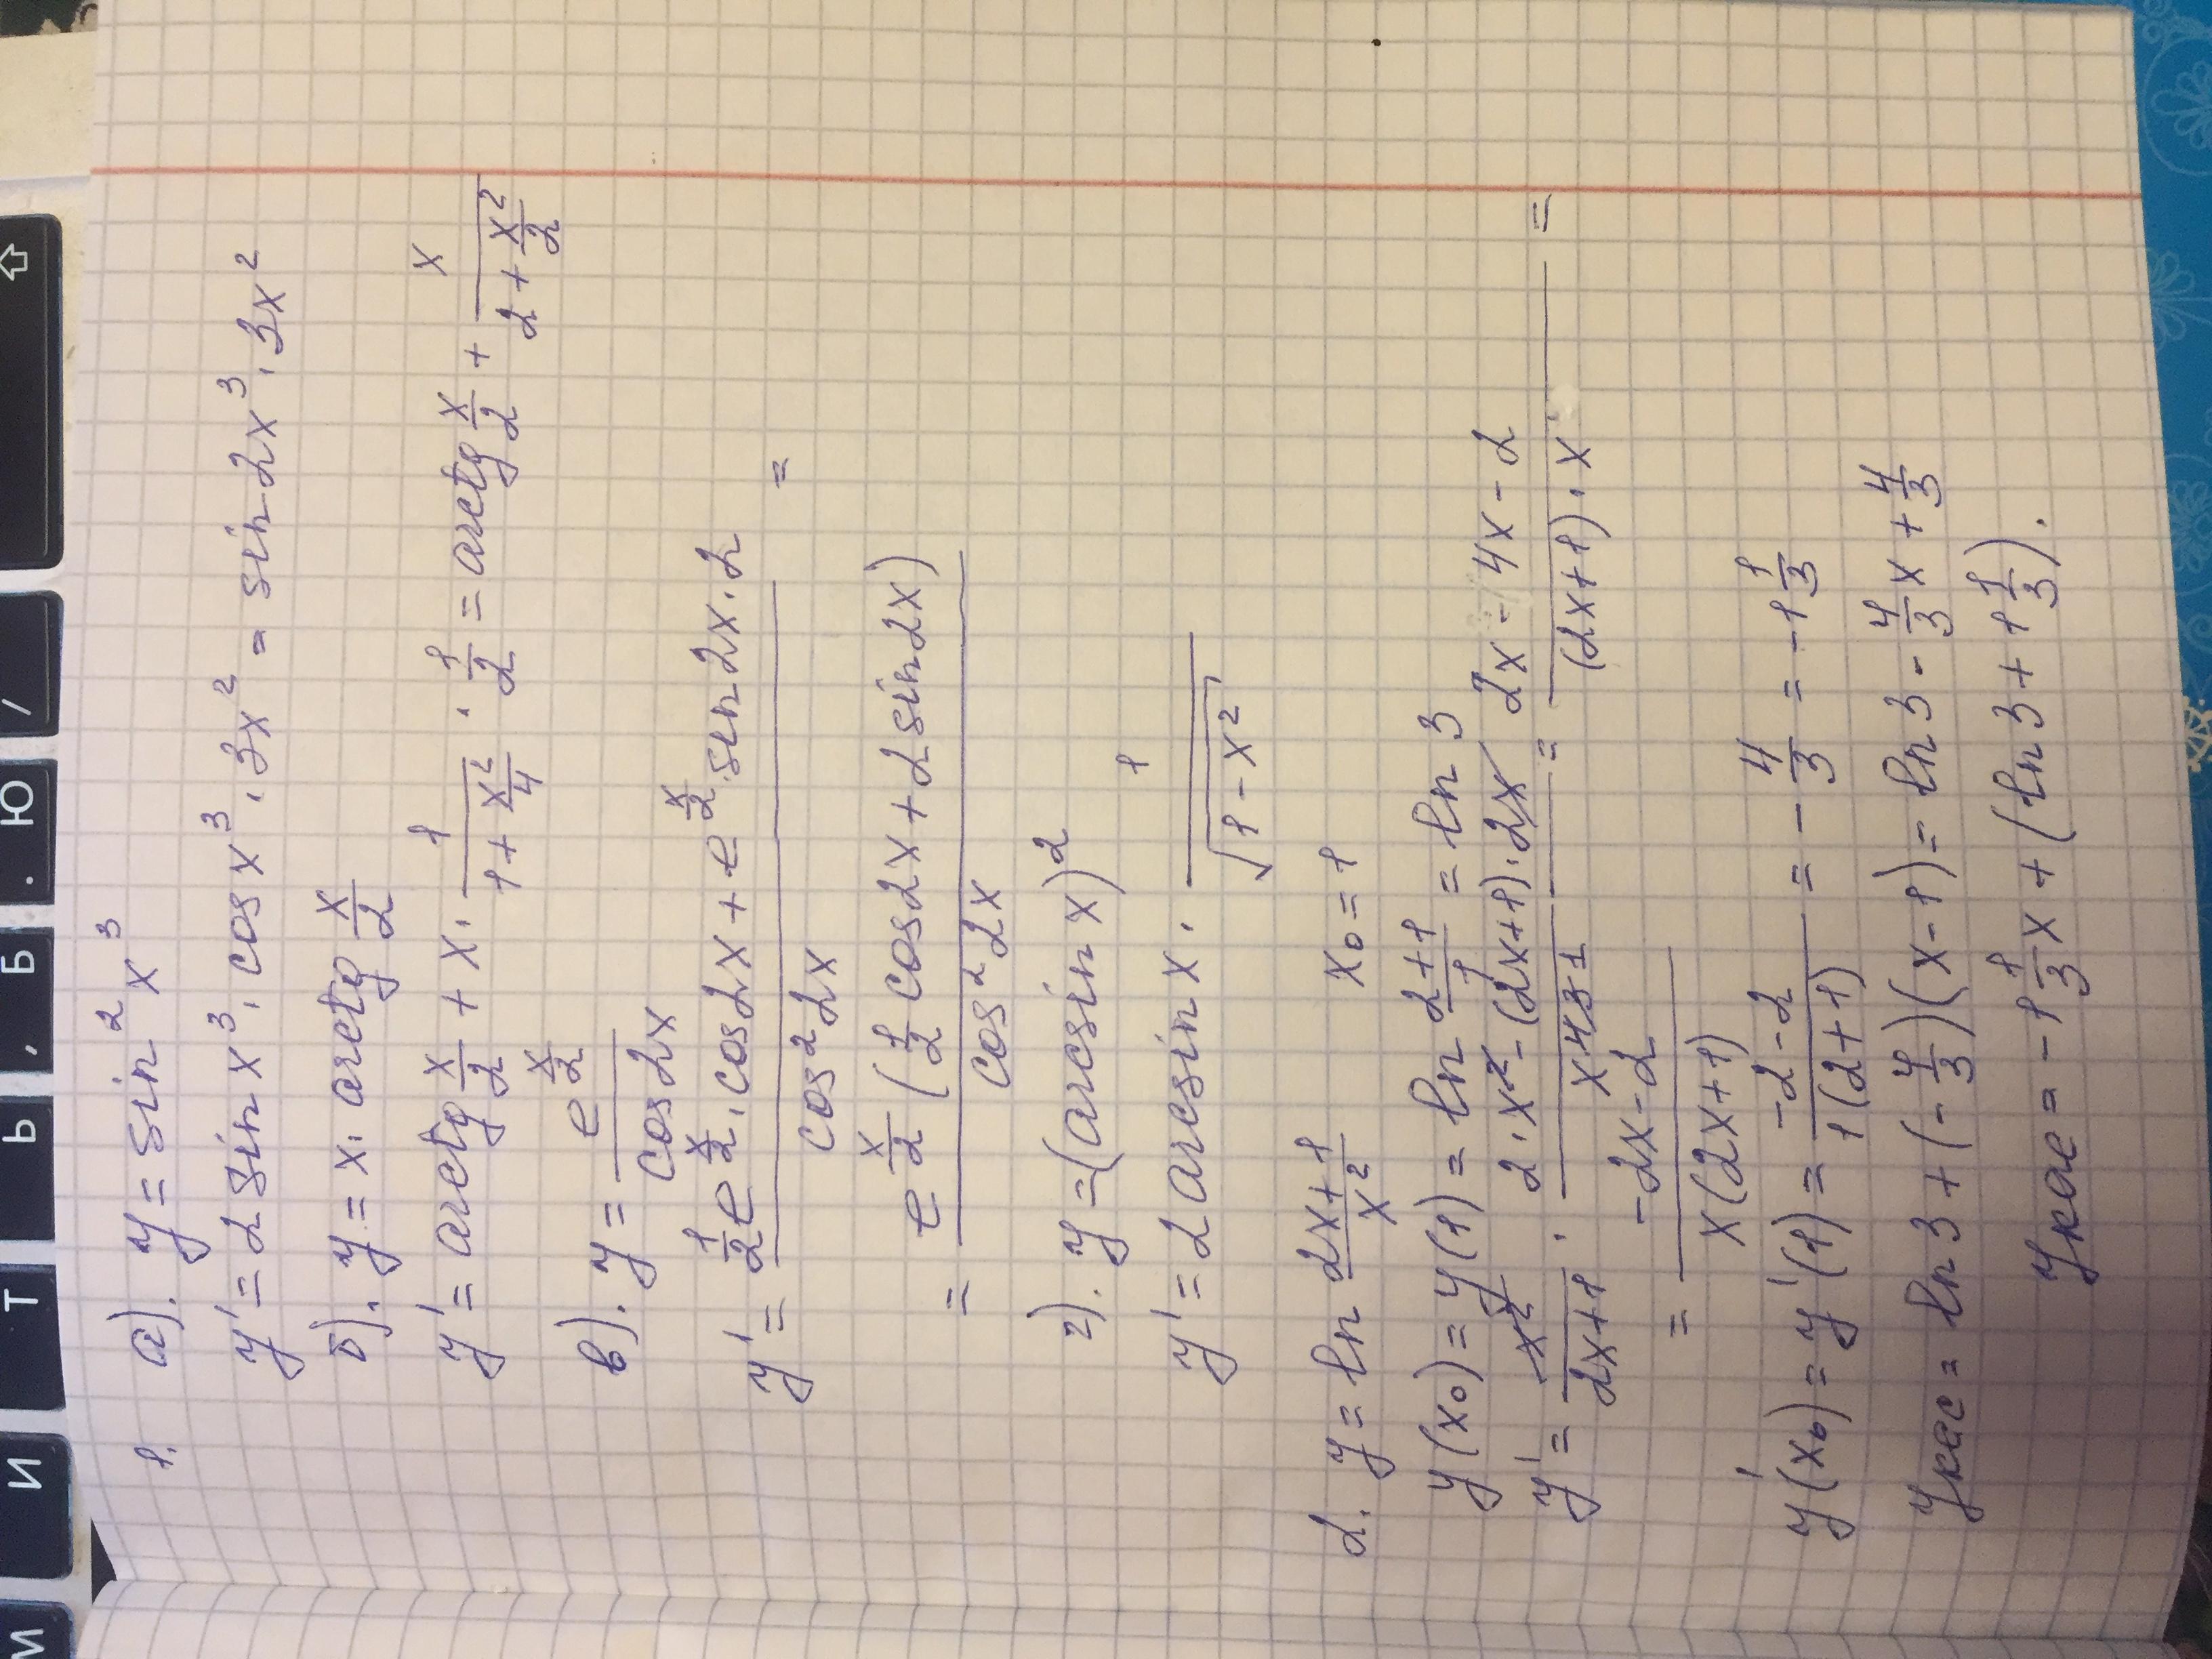 И И Т Ь , Б . Ю / ⇧
1. а). y = sin²x³
y' = 2 sin x³ · cos x³ · 3x² = sin 2x³ · 3x²
б). y = x · arctg x/2
y' = arctg x/2 + x · 1/(1 + x²/4) · 1/2 = arctg x/2 + x/(2 + x²/2)
в). y = e^(x/2)/cos 2x
y' = (1/2 e^(x/2) · cos 2x + e^(x/2) · sin 2x · 2)/cos² 2x =
= e^(x/2) (1/2 cos 2x + 2 sin 2x)/cos² 2x
г). y = (arcsin x)²
y' = 2 arcsin x · 1/√(1 - x²)
2. y = ln (2x+1)/x² x₀ = 1
y(x₀) = y(1) = ln (2+1)/1 = ln 3
y' = x²/(2x+1) · (2 · x² - (2x+1) · 2x)/x⁴³¹ = (2x - 4x - 2)/((2x+1) · x) =
= (-2x - 2)/(x(2x+1))
y'(x₀) = y'(1) = (-2-2)/(1(2+1)) = -4/3 = -1 1/3
yкас = ln 3 + (-4/3)(x-1) = ln 3 - 4/3 x + 4/3
yкас = -1 1/3 x + (ln 3 + 1 1/3).